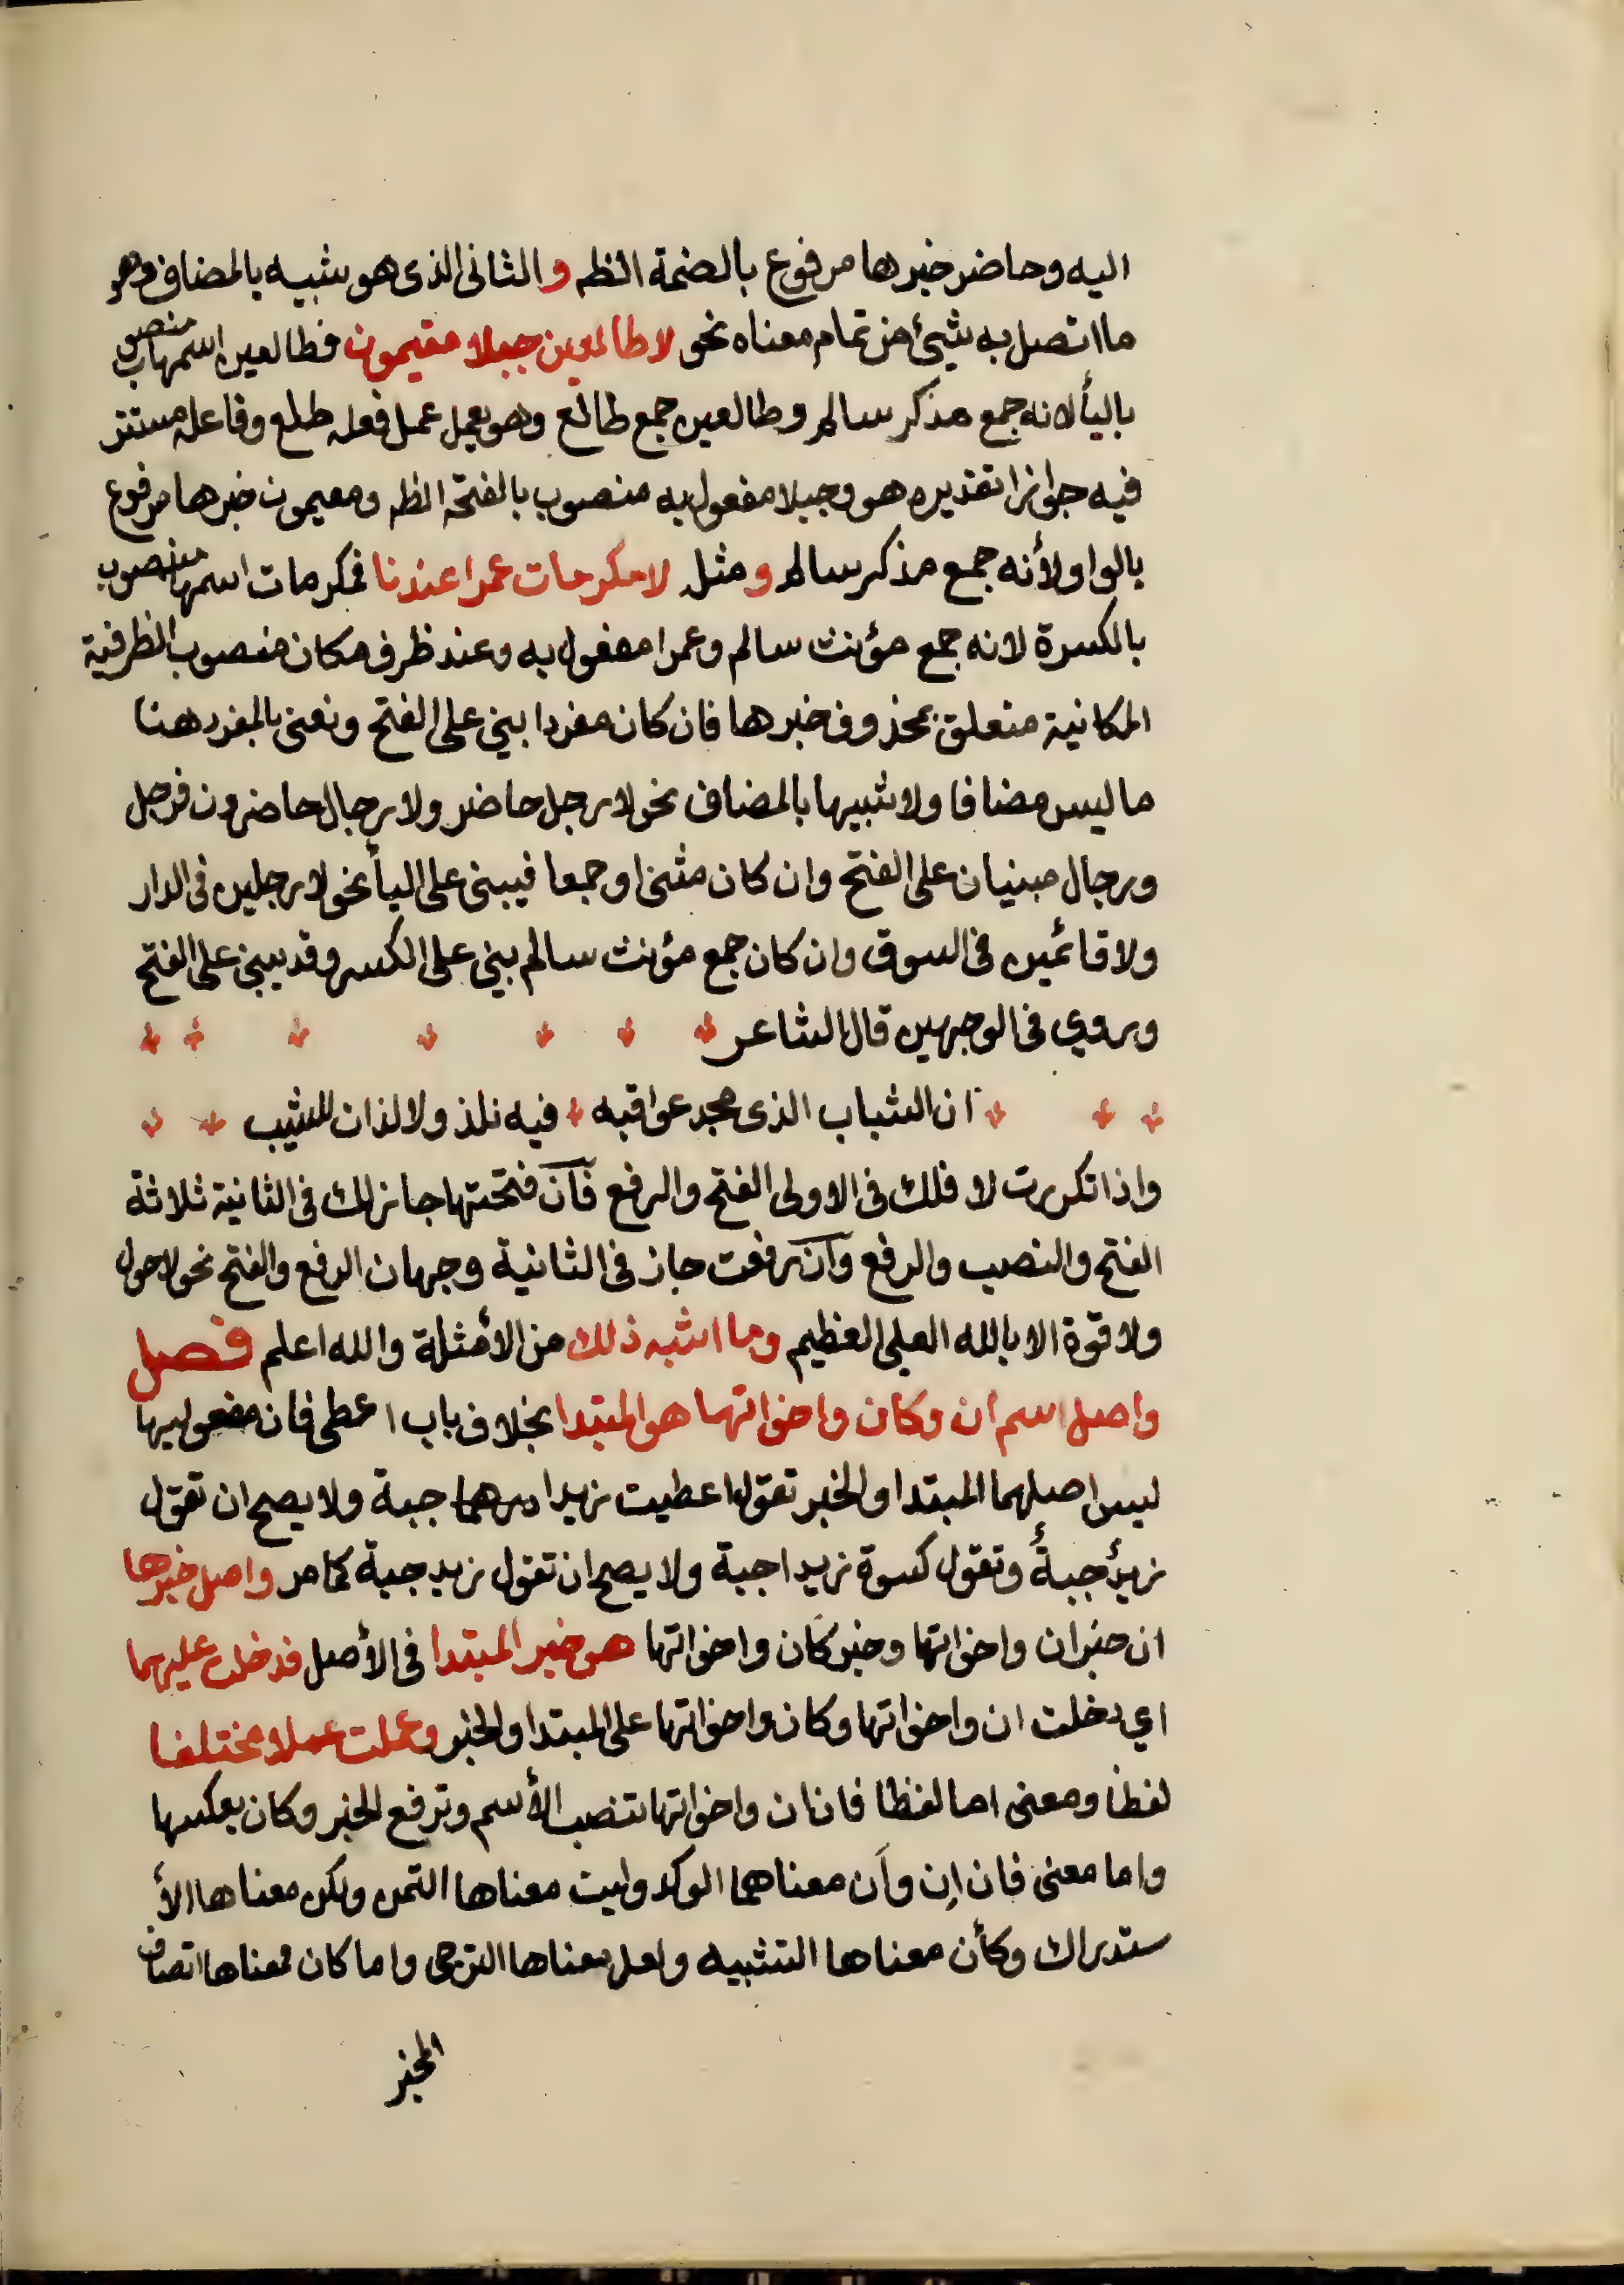 اليه وحاضر خبرها مرفوع بالضمة الظه والثانى الذى هو شبيه بالمضاف وهو
ما اتصل به شيئ من تمام معناه نحو لا طالعين جبلا مقيمون فطالعين اسمها منصوب
باليأ لانه جمع مذكر سالم وطالعين جمع طالع وهو يعمل عمل فعله طلع وفاعله مستتر
فيه جوازا تقديره هو وجبلا مفعول به منصوب بالفتحة الظه ومقيمون خبرها مرفوع
بالواو لأنه جمع مذكر سالم ومثل لا مكرمات عمرا عندنا فمكرمات اسمها منصوب
بالكسرة لانه جمع مؤنث سالم وعمرا مفعول به وعند ظرف مكان منصوب الظرفية
المكانية متعلق بمحذوف خبرها فان كان مفردا بني على الفتح ونعنى بالمفرد هنا
ما ليس مضافا ولا شبيها بالمضاف نحو لا رجل حاضر ولا رجال حاضرون فرجل
ورجال مبنيان على الفتح وان كان مثنى او جمعا فيبنى على اليأ نحو لا رجلين فى الدار
ولا قائمين فى السوق وان كان جمع مؤنث سالم بني على الكسر وقد يبنى على الفتح
وروي فى الوجهين قال الشاعر
ان الشباب الذى مجد عواقبه فيه نلذ ولا لذات للشيب
واذا تكررت لا فلك فى الاولى الفتح والرفع فآن فتحتها جاز لك فى الثانية ثلاثة
الفتح والنصب والرفع وآن رفعت جاز فى الثانية وجهان الرفع والفتح نحو لا حول
ولا قوة الا بالله العلى العظيم وما اشبه ذلك من الأمثلة والله اعلم فصل
واصل اسم ان وكان واخواتهما هو المبتدا بخلاف باب اعطى فان مفعوليها
ليس اصلهما المبتدا والخبر تقول اعطيت زيدا درهما جبة ولا يصح ان تقول
زيدٌ جبةٌ وتقول كسوة زيدا جبة ولا يصح ان تقول زيد جبة كما مر واصل خبرها
ان خبر ان واخواتها وخبر كان واخواتها هو خبر المبتدا فى الأصل فدخلت عليهما
اي دخلت ان واخواتها وكان واخواتها على المبتدا والخبر وعملت عملا مختلفا
لفظا ومعنى اما لفظا فان ان واخواتها تنصب الأسم وترفع الخبر وكان بعكسها
واما معنى فان اِن وأن معناهما الوكد وليت معناها التمن ولكن معناها الأ
ستدراك وكأن معناها التشبيه ولعل معناها الترجى واما كان فمعناها اتصاف
الخبر